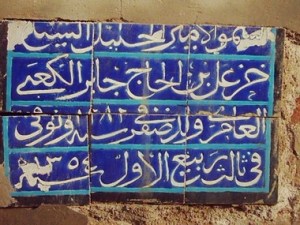 سمو الامير الجليل السيد
خزعل بن الحاج جابر الكعبي
العامري ولد في صفر سنة ١٢٨٠ وتوفي
في ثالث ربيع الاول سنة ١٣٥٤